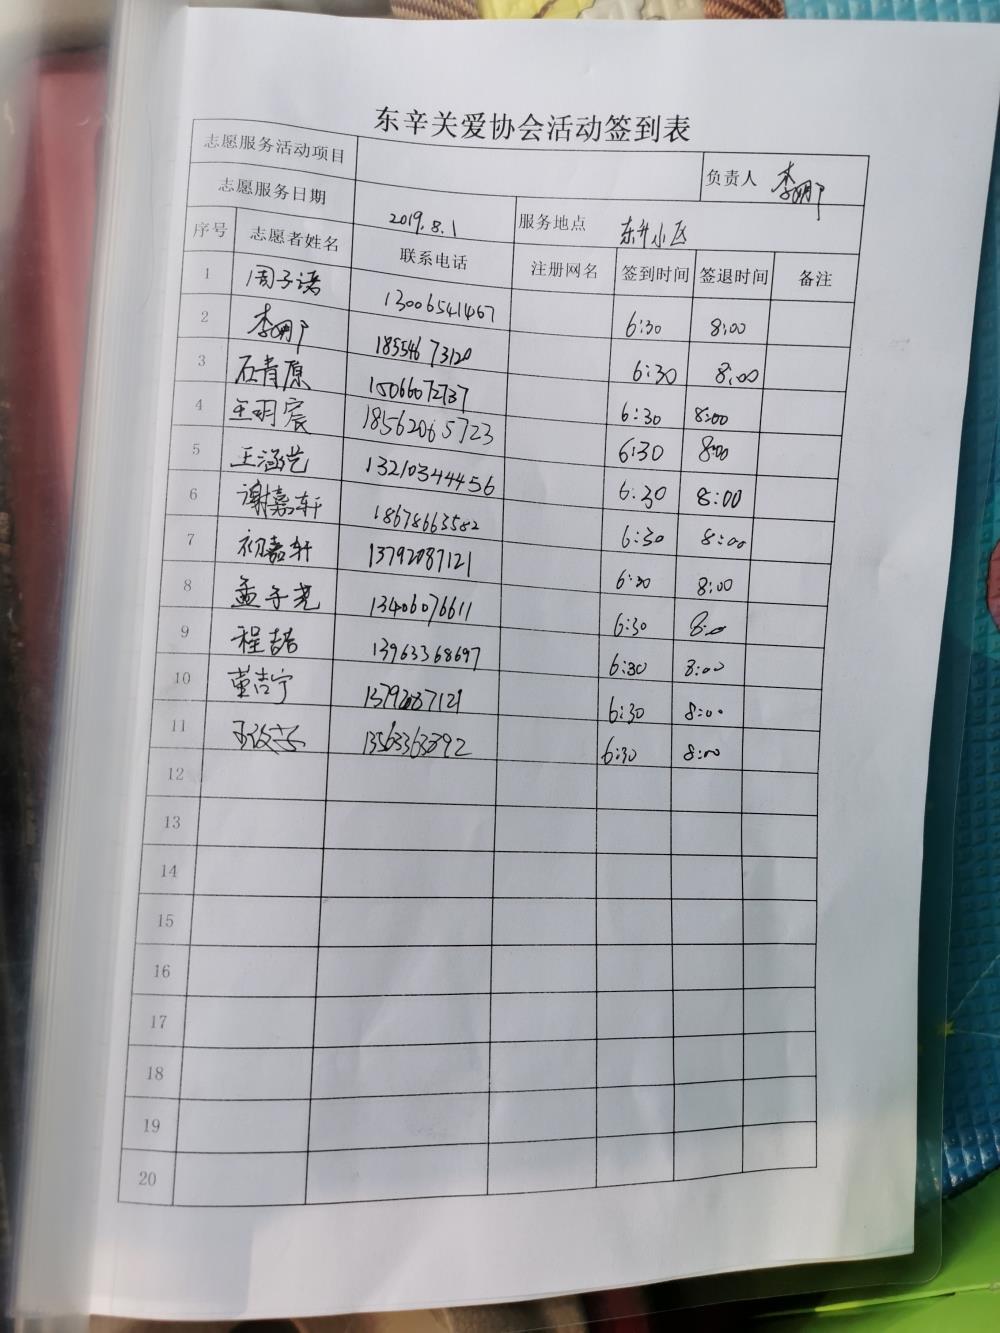 东辛关爱协会活动签到表
志愿服务活动项目 负责人 李娜
志愿服务日期 2019.8.1 服务地点 东升小区
序号 志愿者姓名 联系电话 注册网名 签到时间 签退时间 备注
1 周子诺 13006541467 6:30 8:00
2 李娜 18554673120 6:30 8:00
3 石青原 15066072737 6:30 8:00
4 王玥宸 18562065723 6:30 8:00
5 王涵艺 13210344456 6:30 8:00
6 谢嘉轩 18678663582 6:30 8:00
7 初嘉轩 13792087121 6:30 8:00
8 孟子尧 13406076611 6:30 8:00
9 程喆 13963368697 6:30 8:00
10 董吉宁 13792087121 6:30 8:00
11 6:30 8:00
12
13
14
15
16
17
18
19
20